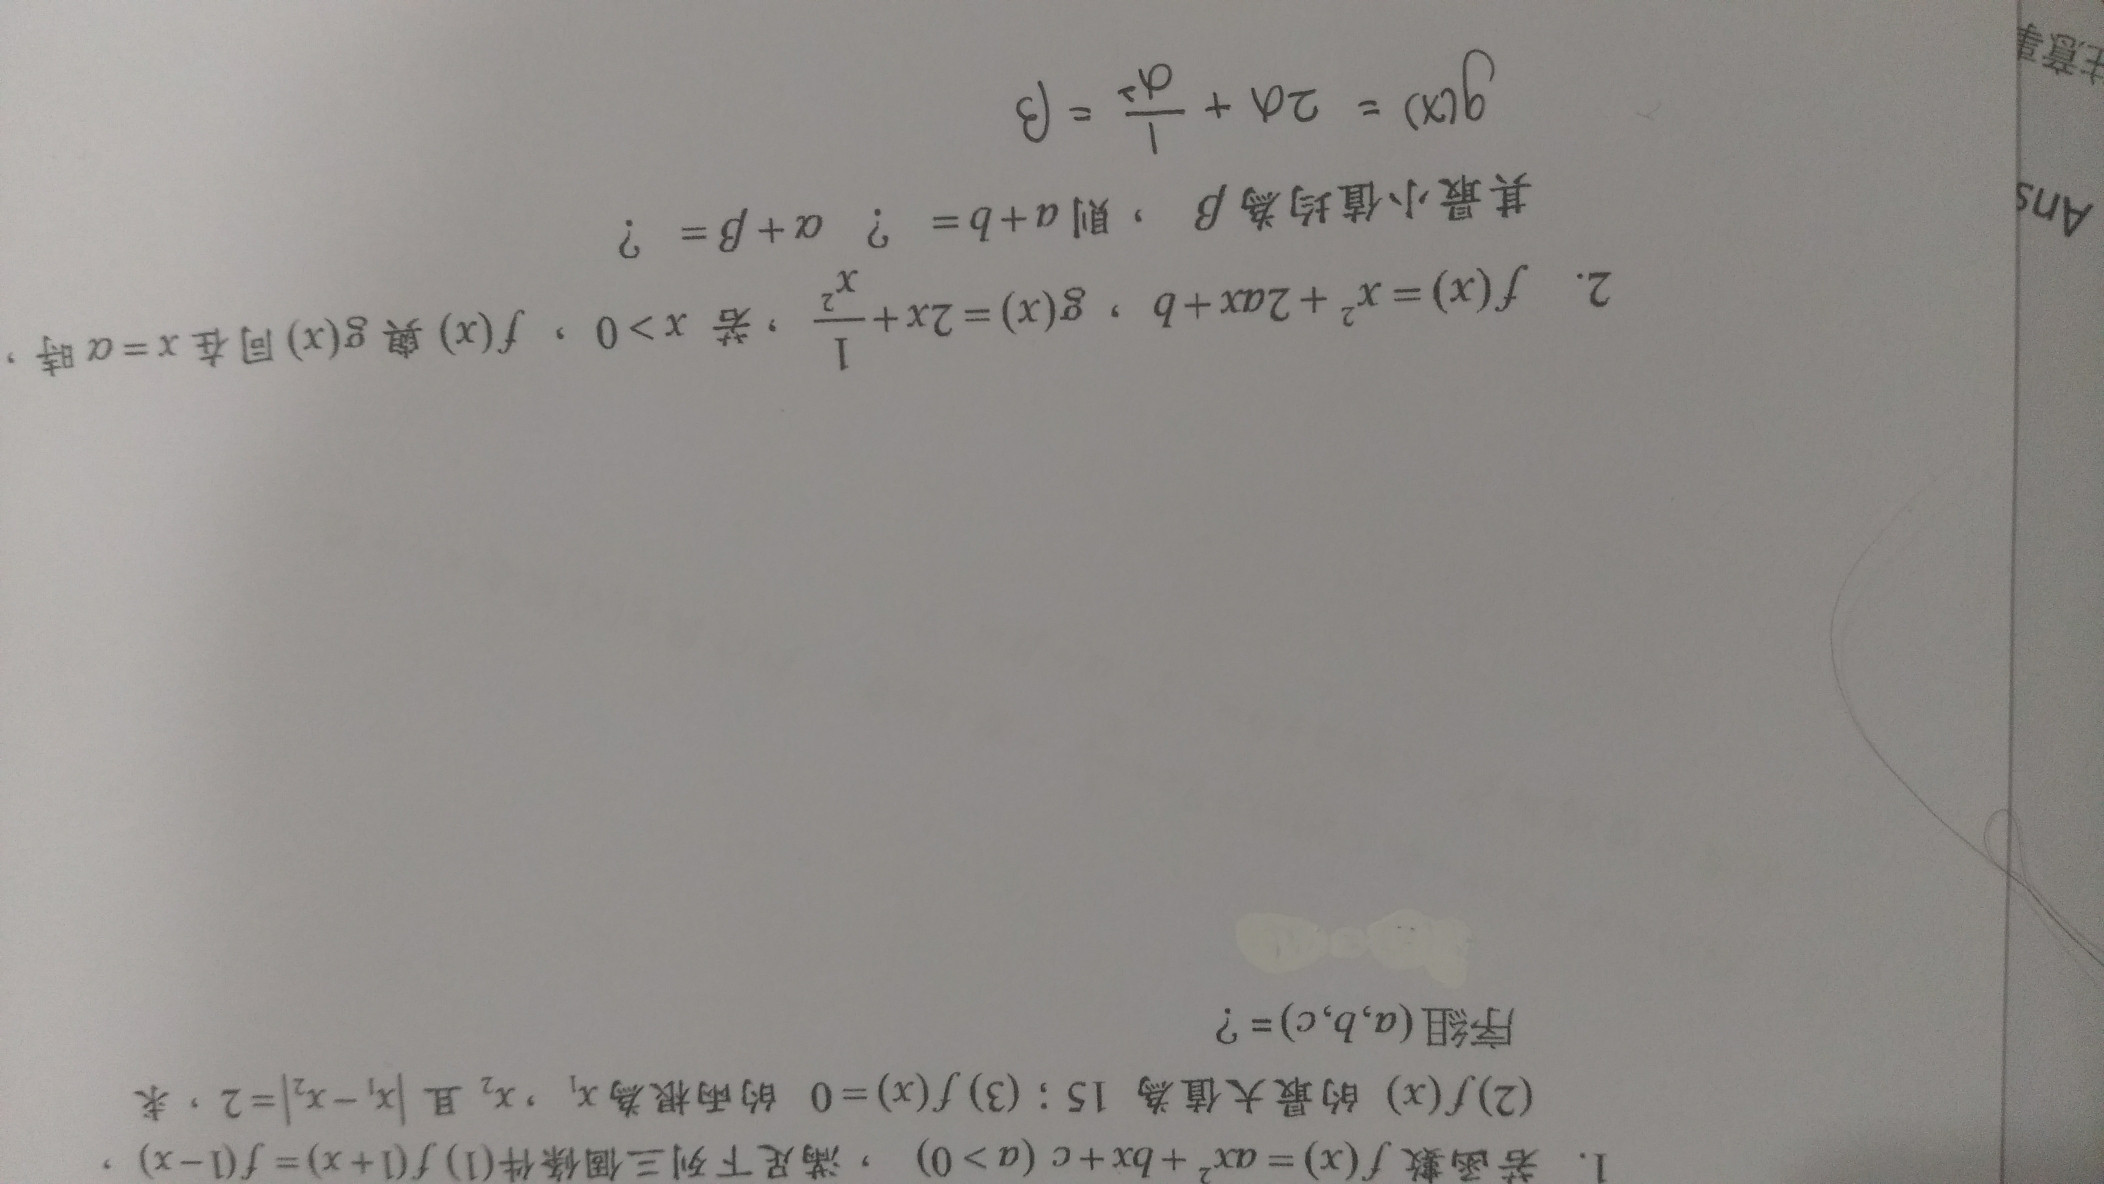 1. 若函數 f(x)=ax²+bx+c (a>0)，滿足下列三個條件(1) f(1+x)=f(1−x)，
(2) f(x) 的最大值為 15；(3) f(x)=0 的兩根為 x₁，x₂ 且 |x₁−x₂|=2，求
序組 (a,b,c)=?
2. f(x)=x²+2ax+b，g(x)=2x+1/x²，若 x>0，f(x) 與 g(x) 同在 x=α 時，
其最小值均為 β，則 a+b= ? α+β= ?
g(x) = 2α + 1/α² = β
Ans
注意事